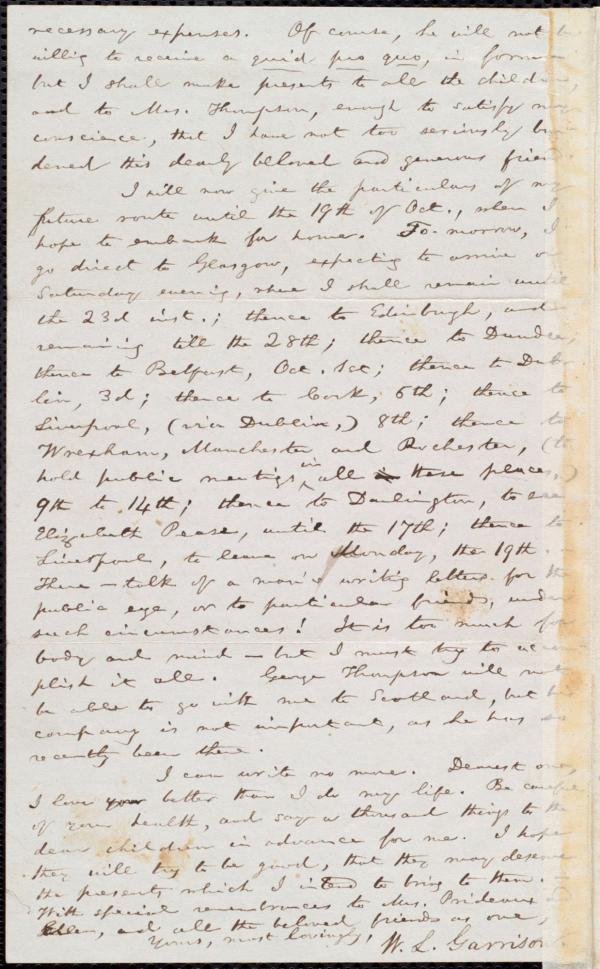 necessary expenses. Of course, he will not be
willig to receive a quid pro quo, in form
but I shall make presents to all the children,
and to Mrs. Thompson, enough to satisfy my
conscience, that I have not too seriously bur-
dened this dearly beloved and generous friend.
I will now give the particulars of my
future route until the 19th of Oct., when I
hope to embark for home. To-morrow, I
go direct to Glasgow, expecting to arrive on
Saturday evening, where I shall remain until
the 23d inst.; thence to Edinburgh, and
remaining till the 28th; thence to Dundee;
thence to Belfast, Oct. 1st; thence to Dub-
lin, 3d; thence to Cork, 6th; thence to
Liverpool, (via Dublin,) 8th; thence to
Wrexham, Manchester and Rochester, (to
hold public meetings in all these places,)
9th to 14th; thence to Darlington, to see
Elizabeth Pease, until the 17th; thence to
Liverpool, to leave on Monday, the 19th.
There—talk of a man's writig letters for the
public eye, or to particular friends, under
such circumstances! It is too much for
body and mind—but I must try to accom-
plish it all. George Thompson will not
be able to go with me to Scotland, but his
company is not important, as he has so
recently been there.
I can write no more. Dearest one,
I love you better than I do my life. Be careful
of your health, and say a thousand things to the
dear children in advance for me. I hope
they will try to be good, that they may deserve
the presents which I intend to bring to them.
With special remembrances to Mrs. Prideaux and
Ellen, and all the beloved friends as one,
Yours, most lovingly, W. L. Garrison.